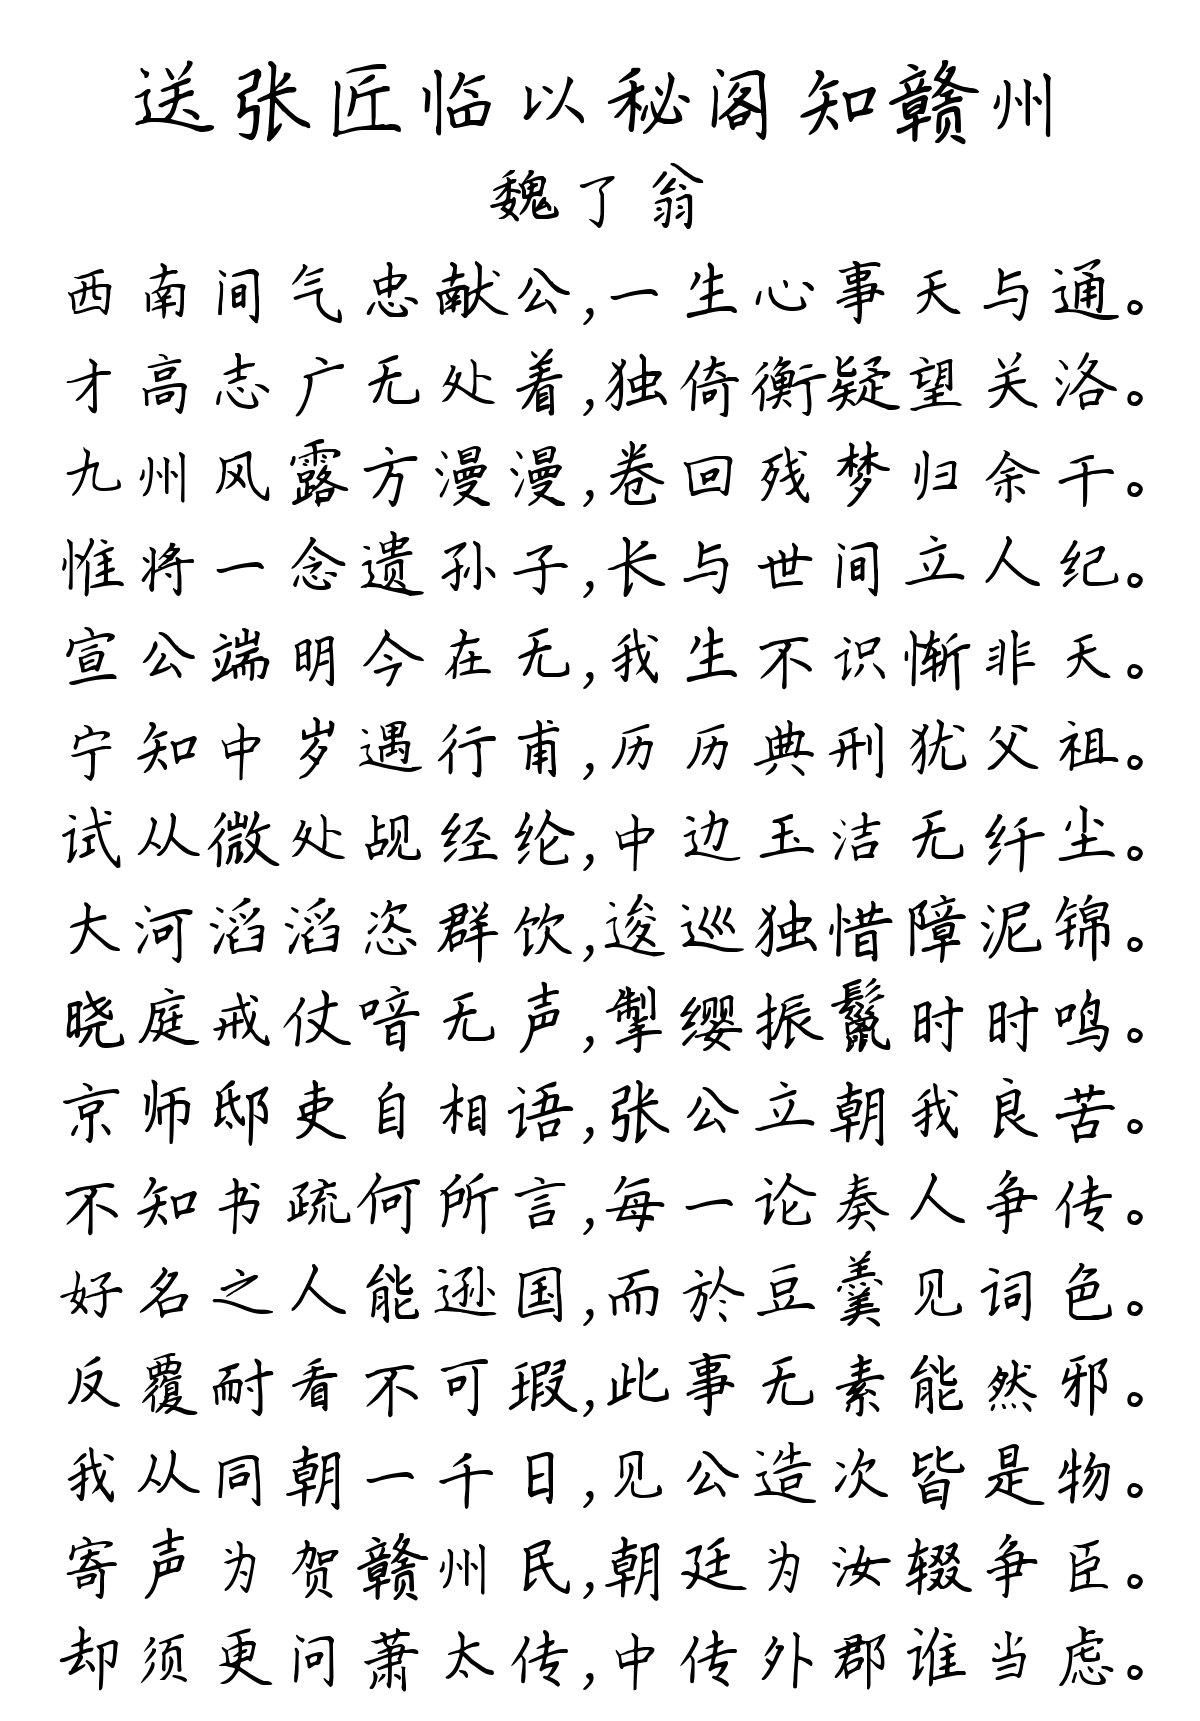 送张匠临以秘阁知赣州
魏了翁
西南间气忠献公,一生心事天与通。
才高志广无处着,独倚衡疑望关洛。
九州风露方漫漫,卷回残梦归余干。
惟将一念遗孙子,长与世间立人纪。
宣公端明今在无,我生不识惭非天。
宁知中岁遇行甫,历历典刑犹父祖。
试从微处觇经纶,中边玉洁无纤尘。
大河滔滔恣群饮,逡巡独惜障泥锦。
晓庭戒仗喑无声,掣缨振鬣时时鸣。
京师邸吏自相语,张公立朝我良苦。
不知书疏何所言,每一论奏人争传。
好名之人能逊国,而於豆羹见词色。
反覆耐看不可瑕,此事无素能然邪。
我从同朝一千日,见公造次皆是物。
寄声为贺赣州民,朝廷为汝辍争臣。
却须更问萧太传,中传外郡谁当虑。